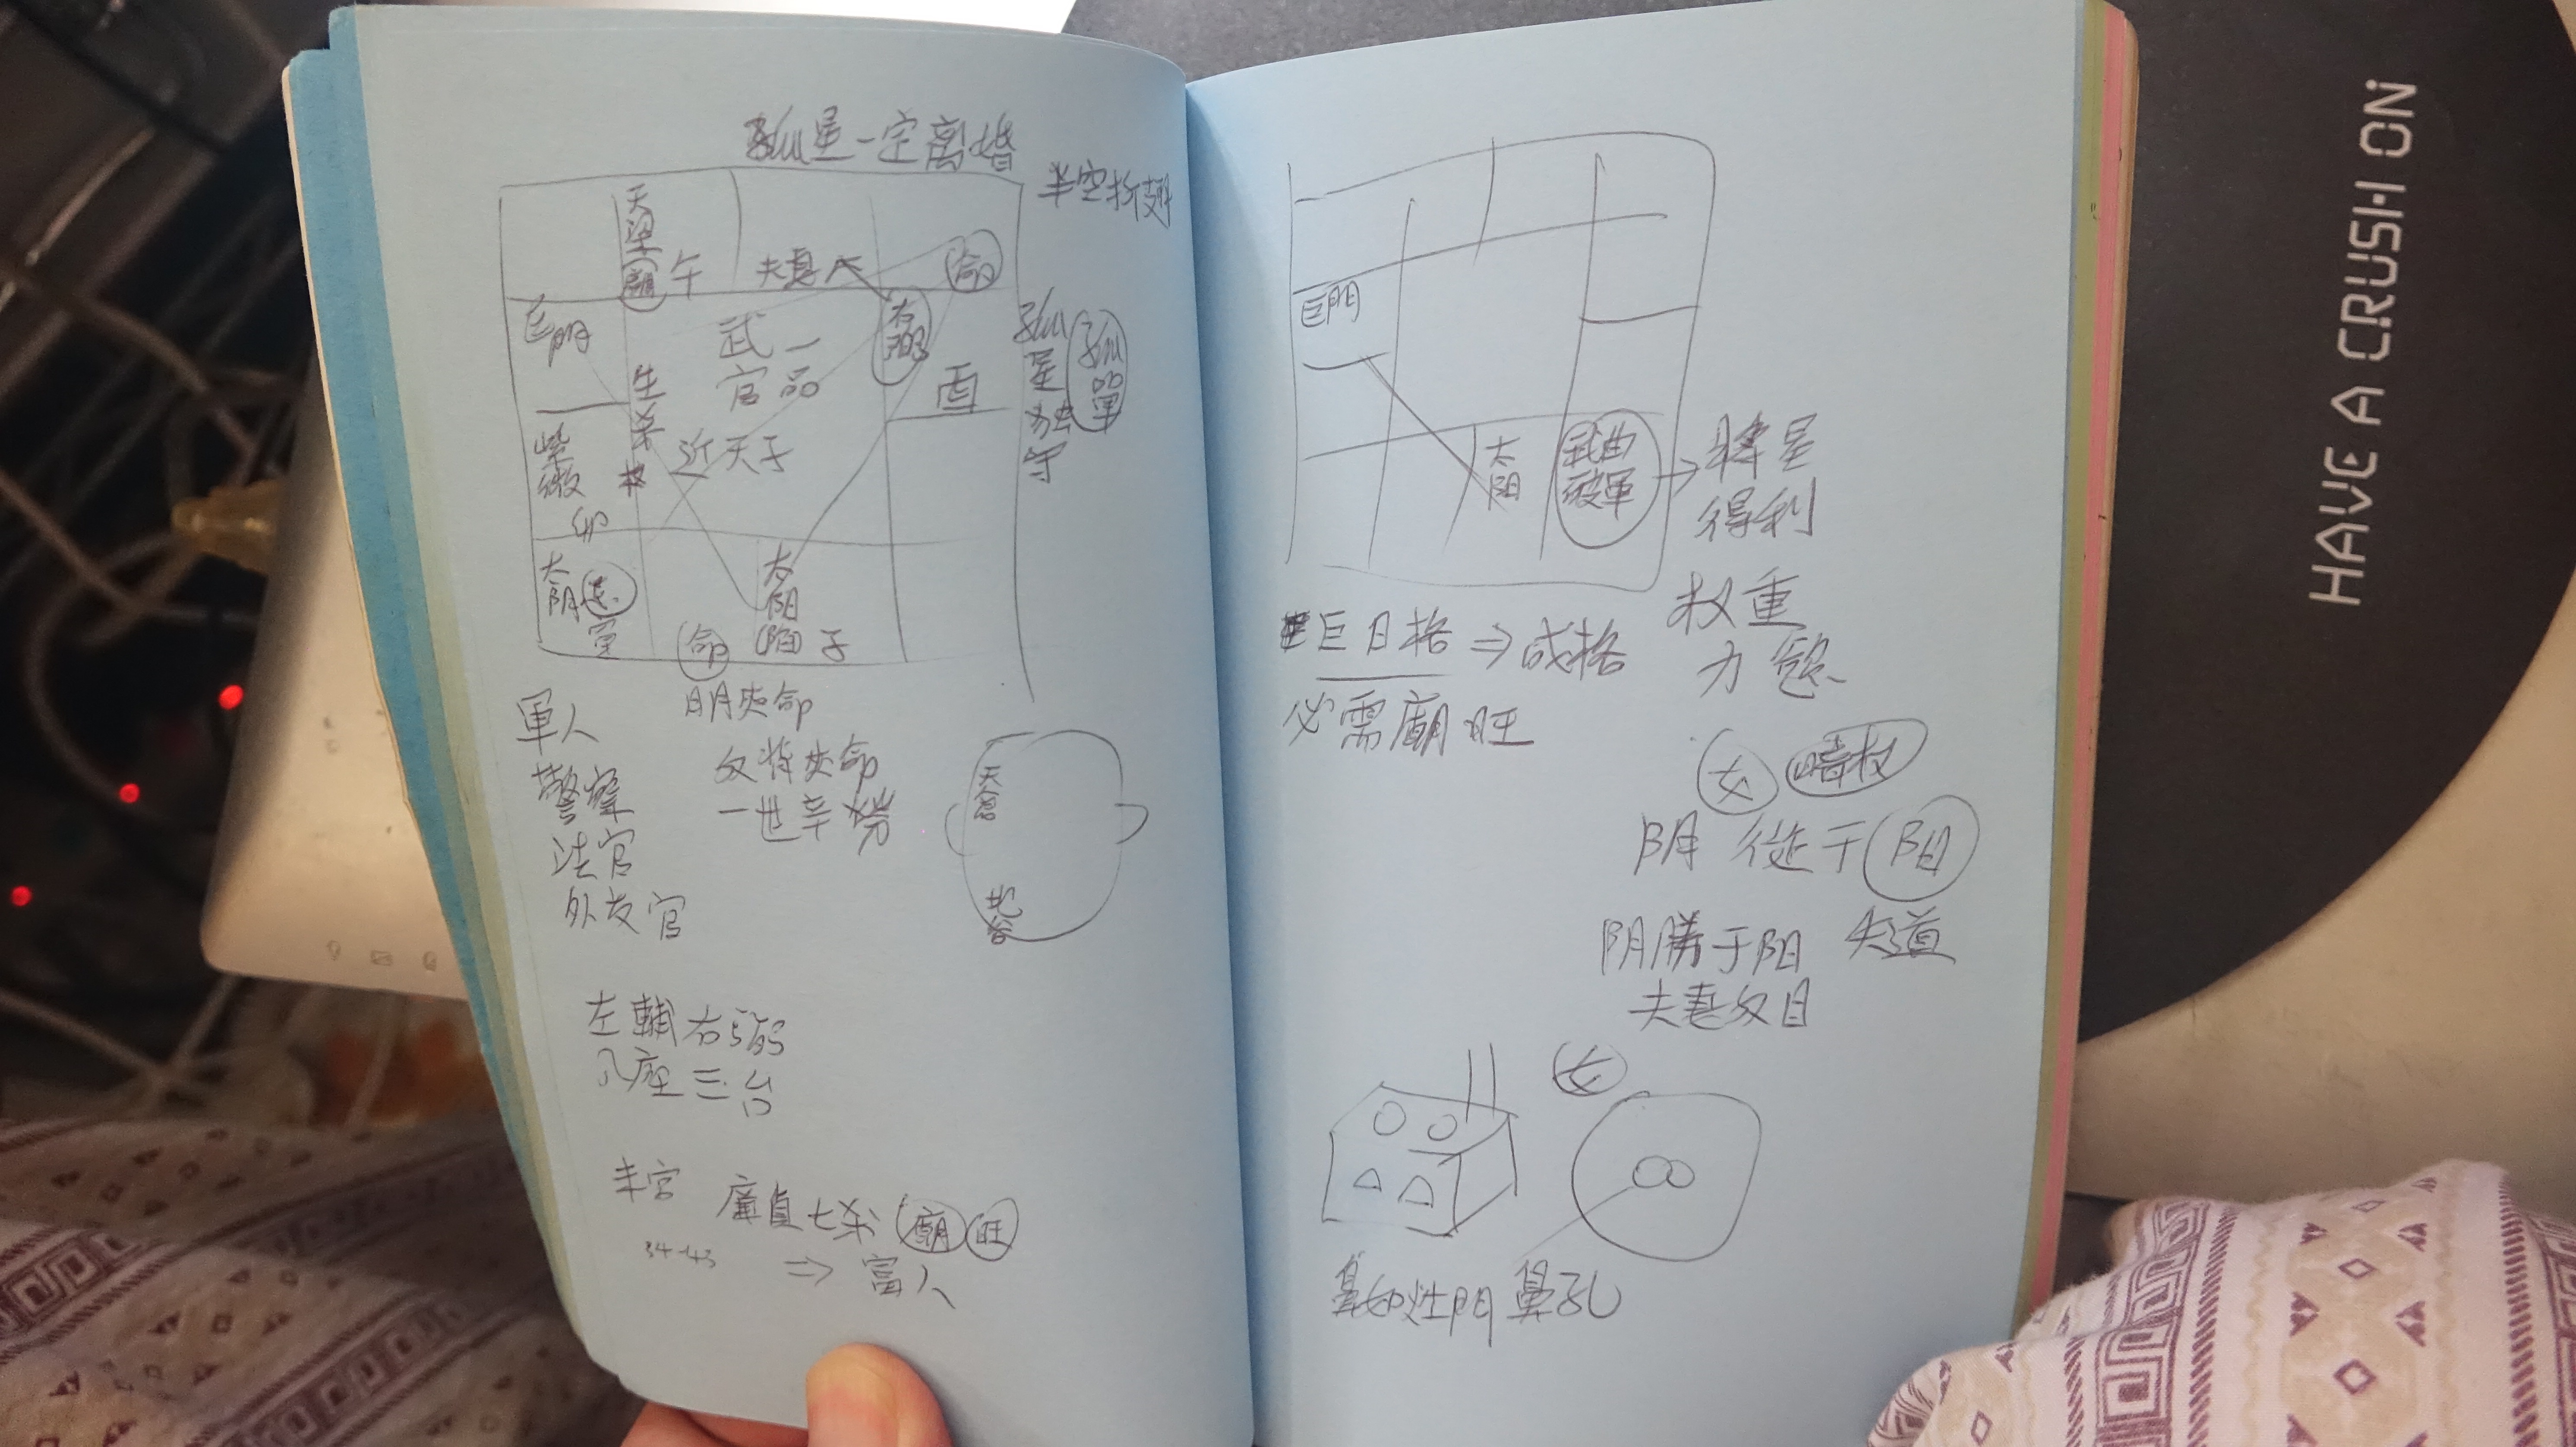 孤星一定离婚
半空折翅
天梁
廟 午
夫妻
命
巨門
武一
官品
右弼
酉
孤星独守
孤單
生杀
近天子
紫微
卯
太阴
太阳
陷 子
命
日月夾命
軍人
警察
法官
外交官
文将夾命
一世辛勞
天倉
地
左輔右弼
八座三台
廉貞七杀 廟 旺
34-43
⇒ 富人
巨門
太阳
武曲
破軍
→ 将星
得利
巨日格 ⇒ 成格
必需廟旺
权重
女
嗜权
阴 従于 阳
阴勝于阳 失道
夫妻反目
女
鼻如灶門 鼻孔
HAVE A CRUSH ON